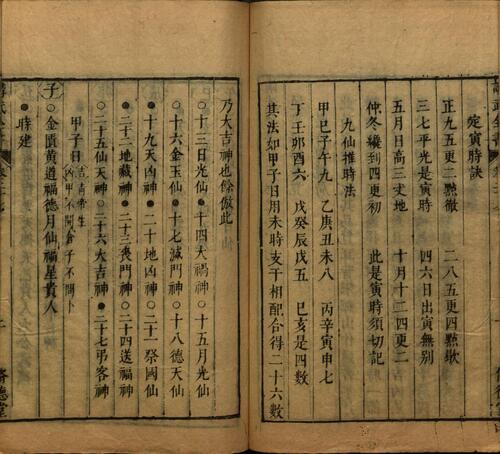 定寅時訣
正九五更二㸃徹　二八五更四㸃歇
三七平光是寅時　四六日出寅無别
五月日高三丈地　十月十二四更二
仲冬纔到四更初　此是寅時須切記
九仙推時法
甲巳子午九　乙庚丑未八　丙辛寅申七
丁壬卯酉六　戊癸辰戌五　巳亥是四數
其法如甲子日用未時支干相配合得二十六數
乃大吉神也餘倣此
○十三日光仙○十四天福神○十五月光仙
○十六金玉仙○十七滅門神○十八德天仙
●十九天凶神●二十地凶神●二十一祭國仙
●二十二地藏神●二十三喪門神●二十四送福神
●二十五仙天神○二十六大吉神●二十七弔客神
甲子日
子○金匱黄道福德月仙福星貴人
●時建
脊德堂